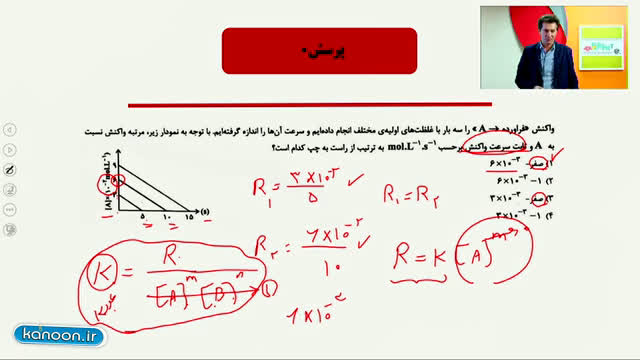 پرسش۰
واکنش «فراورده → A» را سه بار با غلظت‌های اولیه‌ی مختلف انجام داده‌ایم و سرعت آن‌ها را اندازه گرفته‌ایم. با توجه به نمودار زیر، مرتبه واکنش نسبت
به A و ثابت سرعت واکنش برحسب mol.L⁻¹.s⁻¹ به ترتیب از راست به چپ کدام است؟
۱) صفر - ۶×۱۰⁻۳
۲) ۱ - ۶×۱۰⁻۳
۳) صفر - ۳×۱۰⁻۳
۴) ۱ - ۳×۱۰⁻۳
[A]×۱۰⁻۲(mol.L⁻¹)
۹
۶
۳
۵ ۱۰ ۱۵ (s)
R₁ = ۳×۱۰⁻۲ / ۵
R₁ = R₂
R₂ = ۶×۱۰⁻۲ / ۱۰
R = K [A]
K = R / [A]ᵐ [B]ⁿ ①
۶×۱۰⁻۳
kanoon.ir